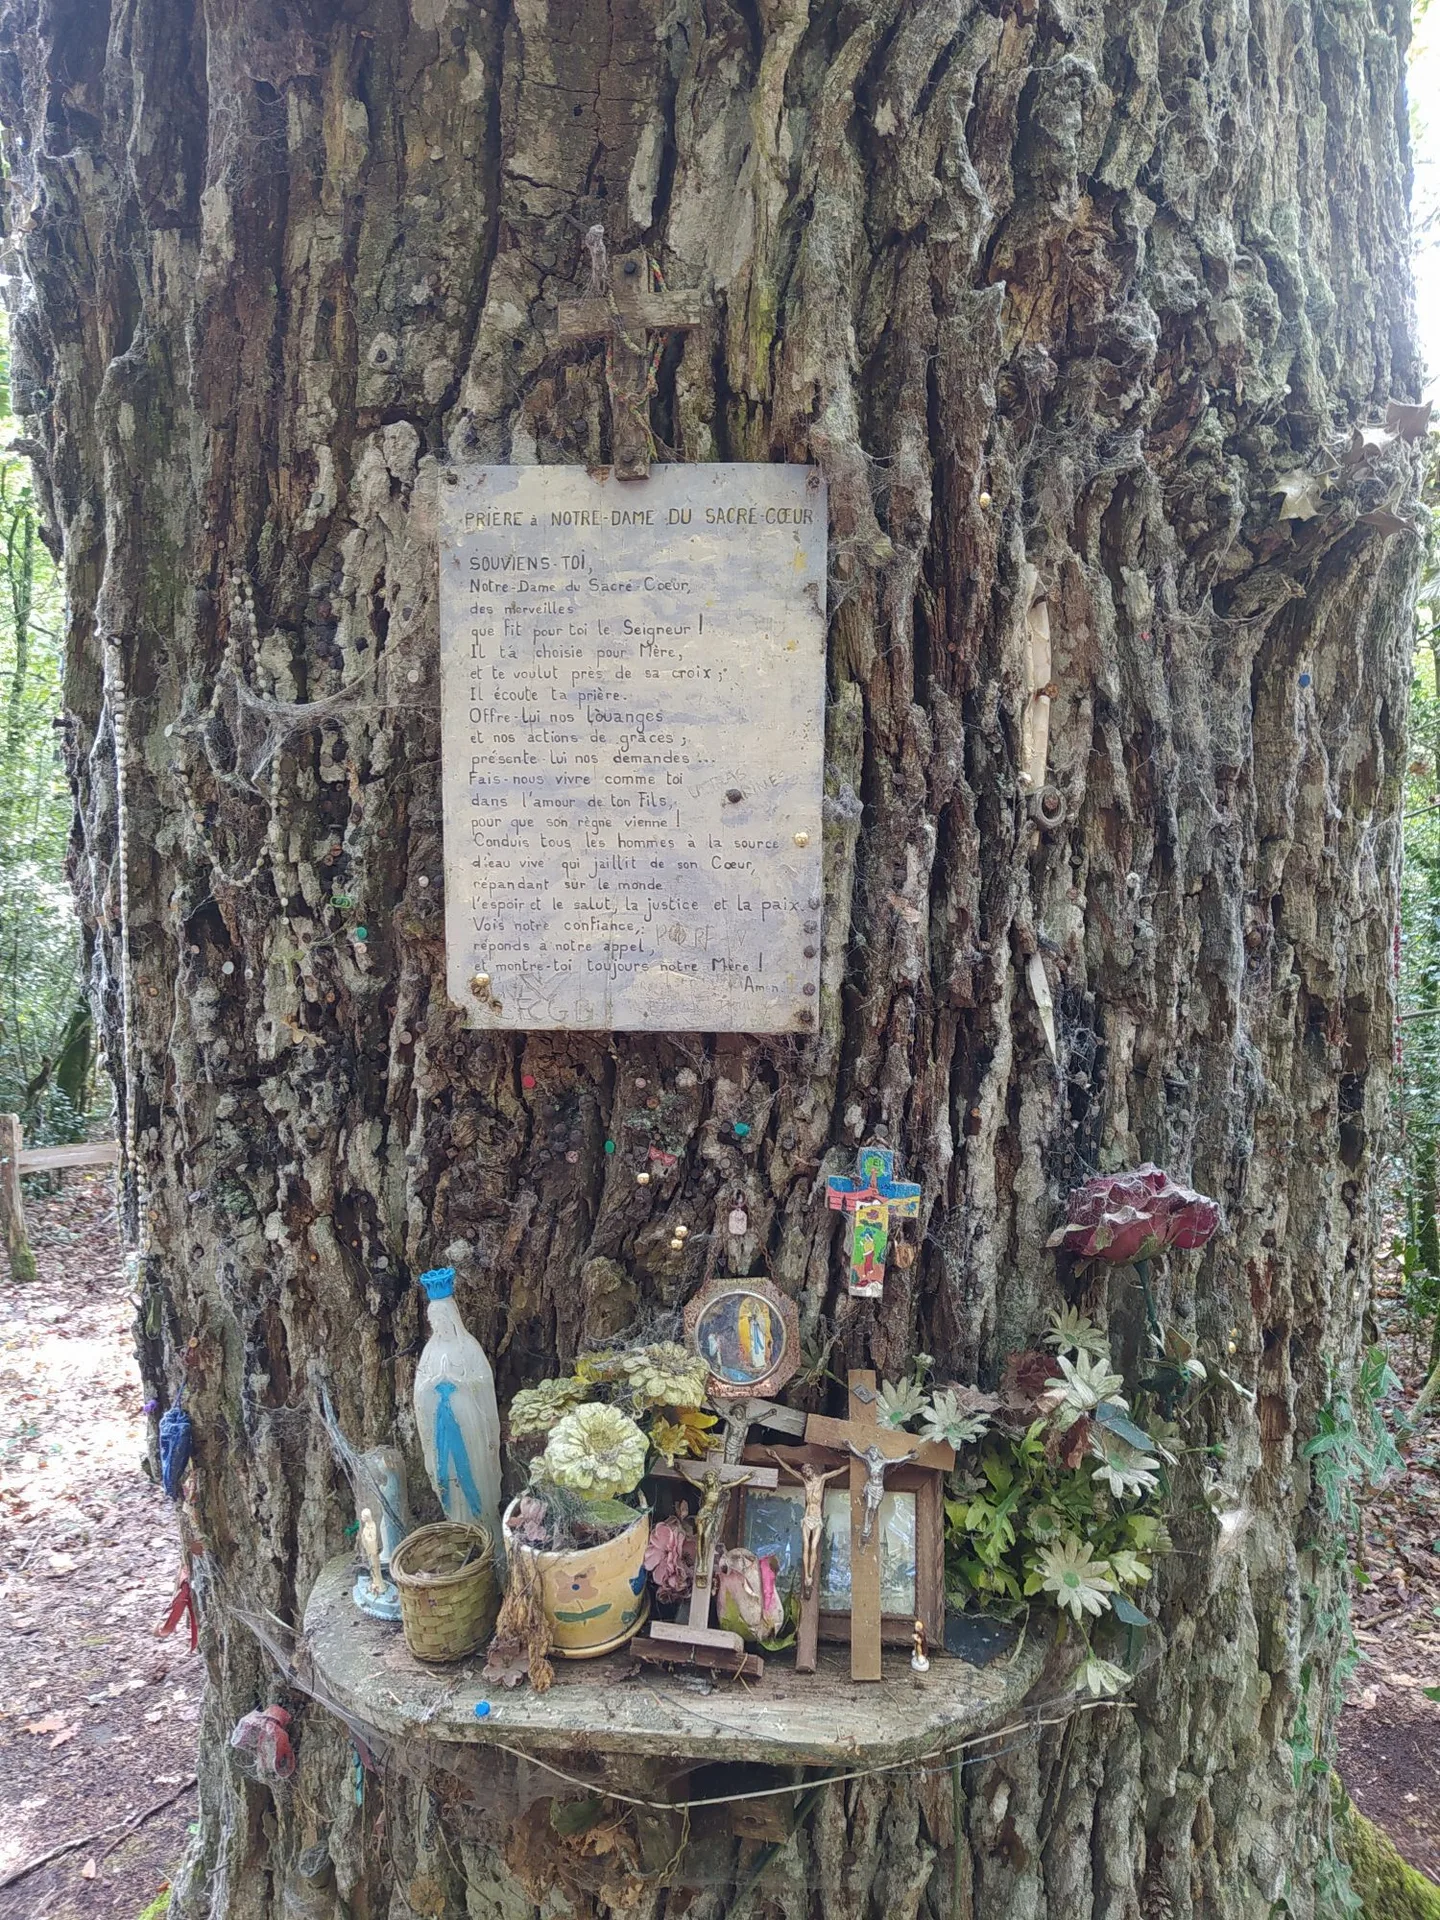 PRIÈRE à NOTRE-DAME DU SACRÉ-CŒUR
SOUVIENS-TOI,
Notre-Dame du Sacré Cœur,
des merveilles
que fit pour toi le Seigneur !
Il t'a choisie pour Mère,
et te voulut près de sa croix ;
Il écoute ta prière.
Offre-lui nos louanges
et nos actions de grâces ;
présente-lui nos demandes ...
Fais-nous vivre comme toi
dans l'amour de ton Fils,
pour que son règne vienne !
Conduis tous les hommes à la source
d'eau vive qui jaillit de son Cœur,
répandant sur le monde
l'espoir et le salut, la justice et la paix.
Vois notre confiance,
réponds à notre appel,
et montre-toi toujours notre Mère !
Amen.